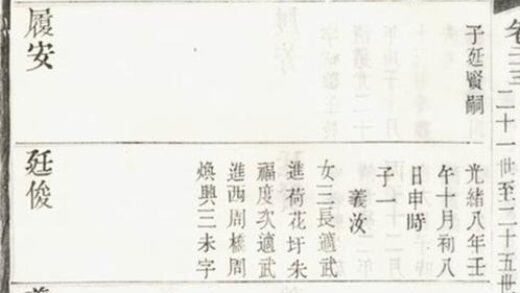 卷二三
二十一世至二十五世
子延賢嗣
履安
光緒八年壬
午十月初八
日申時
子一
義汝
女三長適武
進荷花圩朱
福度次適武
進西周橋周
煥興三未字
廷俊